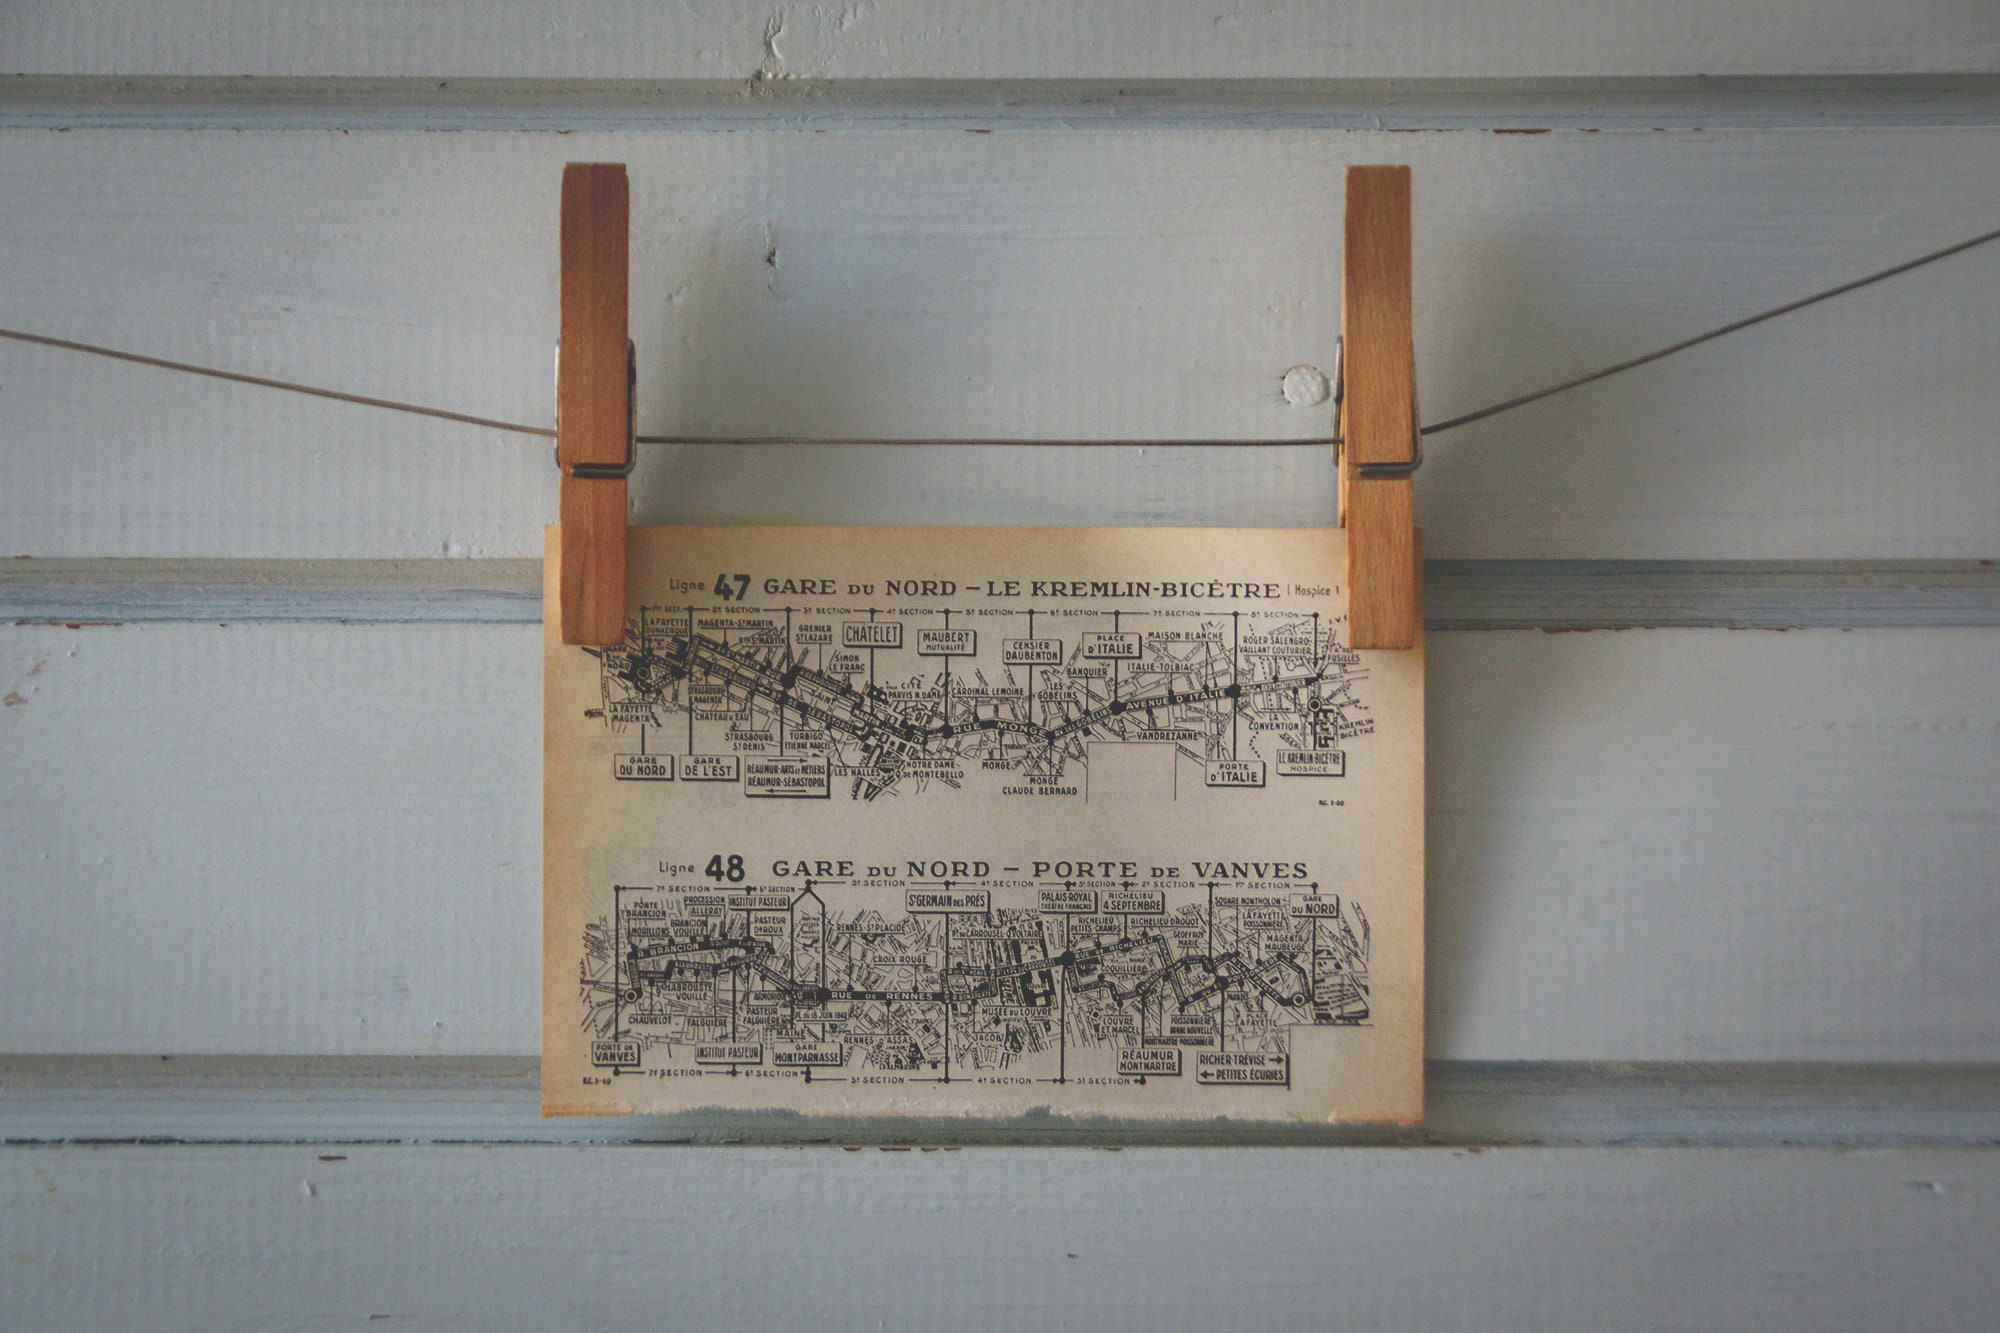 Ligne 47 GARE DU NORD – LE KREMLIN-BICÈTRE (Hospice)
2e SECTION 3e SECTION 4e SECTION 5e SECTION 6e SECTION 7e SECTION 8e SECTION
LA FAYETTE
DUNKERQUE
MAGENTA-ST MARTIN
GRENIER
ST LAZARE
CHATELET
MAUBERT
MUTUALITÉ
CENSIER
DAUBENTON
PLACE
D'ITALIE
MAISON BLANCHE
ROGER SALENGRO
VAILLANT COUTURIER
FUSILLÉS
SIMON
LE FRANC
CITÉ
PARVIS N. DAME
CARDINAL LEMOINE
LES
GOBELINS
BANQUIER
ITALIE-TOLBIAC
STRASBOURG
MAGENTA
CHATEAU D'EAU
LA FAYETTE
MAGENTA
RUE MONGE
AVENUE D'ITALIE
LA
CONVENTION
KREMLIN
BICÈTRE
STRASBOURG
ST DENIS
TURBIGO
ETIENNE MARCEL
LES HALLES
NOTRE DAME
DE MONTEBELLO
MONGE
MONGE
CLAUDE BERNARD
VANDREZANNE
GARE
DU NORD
GARE
DE L'EST
RÉAUMUR-ARTS ET MÉTIERS
RÉAUMUR-SÉBASTOPOL
PORTE
D'ITALIE
LE KREMLIN BICÈTRE
HOSPICE
Ligne 48 GARE DU NORD – PORTE DE VANVES
7e SECTION 6e SECTION 5e SECTION 4e SECTION 3e SECTION 2e SECTION 1re SECTION
PORTE
BRANCION
PROCESSION
ALLERAY
INSTITUT PASTEUR
ST GERMAIN DES PRÉS
PALAIS-ROYAL
THÉÂTRE FRANÇAIS
RICHELIEU
4 SEPTEMBRE
SQUARE MONTHOLON
GARE
DU NORD
MORILLONS
BRANCION
VOUILLÉ
PASTEUR
DR ROUX
RENNES-ST PLACIDE
RICHELIEU
PETITS-CHAMPS
RICHELIEU DROUOT
GEOFFROY
MARIE
LA FAYETTE
POISSONNIÈRE
MAGENTA
MAUBEUGE
R. BRANCION
CROIX ROUGE
COQUILLIÈRE
LABROUSTE
VOUILLÉ
RUE DE RENNES
CHAUVELOT
FALGUIÈRE
PASTEUR
FALGUIÈRE
PL. DU 18 JUIN 1940
MAINE
RENNES-D'ASSAS
MUSÉE DU LOUVRE
JACOB
LOUVRE
ET MARCEL
POISSONNIÈRE
BONNE NOUVELLE
MONTMARTRE-POISSONNIÈRE
PLACE
LA FAYETTE
PORTE DE
VANVES
INSTITUT PASTEUR
GARE
MONTPARNASSE
RÉAUMUR
MONTMARTRE
RICHER-TRÉVISE
PETITES ÉCURIES
7e SECTION 6e SECTION 5e SECTION 4e SECTION 3e SECTION